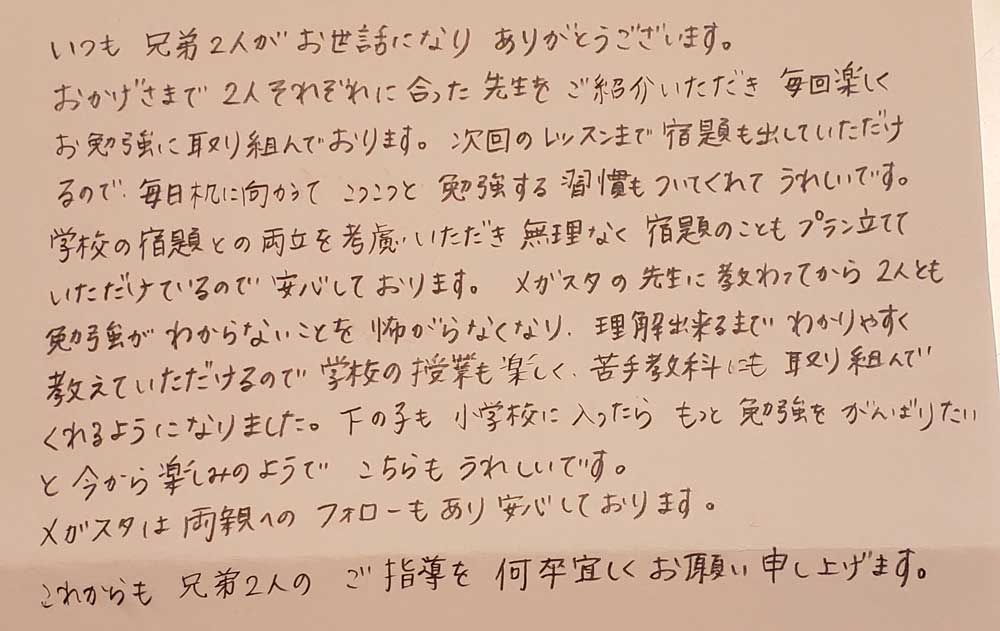 いつも 兄弟2人が お世話になり ありがとうございます。
おかげさまで 2人それぞれに 合った 先生を ご紹介いただき 毎回楽しく
お勉強に 取り組んでおります。 次回の レッスンまで 宿題も出していただけ
るので、毎日机に向かって こつこつと 勉強する 習慣も ついてくれて うれしいです。
学校の宿題との両立を考慮いただき 無理なく 宿題のことも プラン立てて
いただけているので 安心しております。 メガスタの 先生に 教わってから 2人とも
勉強が わからないことを 怖がらなくなり、理解出来るまで わかりやすく
教えていただけるので 学校の 授業も 楽しく、苦手教科にも 取り組んで
くれるようになりました。下の子も 小学校に 入ったら もっと 勉強を がんばりたい
と 今から 楽しみのようで こちらも うれしいです。
メガスタは 両親への フォローもあり 安心しております。
これからも 兄弟2人の ご指導を 何卒宜しく お願い 申し上げます。